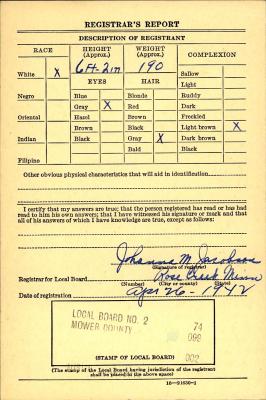 REGISTRAR'S REPORT
DESCRIPTION OF REGISTRANT
RACE HEIGHT (Approx.) WEIGHT (Approx.) COMPLEXION
White X 6 ft-2 in 190 Sallow
EYES HAIR Light
Negro Blue Blonde Ruddy
Gray X Red Dark
Oriental Hazel Brown Freckled
Brown Black Light brown X
Indian Black Gray X Dark brown
Bald Black
Filipino
Other obvious physical characteristics that will aid in identification
I certify that my answers are true; that the person registered has read or has had
read to him his own answers; that I have witnessed his signature or mark and that
all of his answers of which I have knowledge are true, except as follows:
Johanna M. Jacobson
(Signature of registrar)
Registrar for Local Board Rose Creek Minn
(Number) (City or county) (State)
Date of registration Apr 26 - 1942
LOCAL BOARD NO. 2 74
MOWER COUNTY 099
002
(STAMP OF LOCAL BOARD)
(The stamp of the Local Board having jurisdiction of the registrant
shall be placed in the above space)